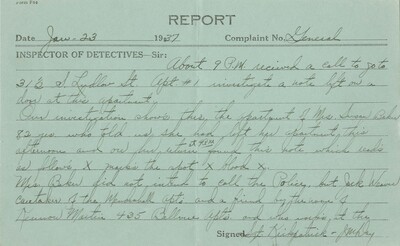 REPORT
Date Jan-23 1937 Complaint No. General
INSPECTOR OF DETECTIVES—Sir:
About 9 P.M. received a call to go to
312 S. Ludlow St. Apt #1 investigate a note left on a
door at this apartment.
Our investigation shows this, the apartment of Mrs. Baker
82 yrs who told us she had left her apartment this
afternoon and on her return found this note which reads
as follows, X marks the spot X Blood X
Mrs Baker did not intend to call the Police, but Jack
caretaker of the Apts and a friend by the name of
Martin 435 Bellevue Apts and who works at the
Signed Sgt Kirkpatrick -